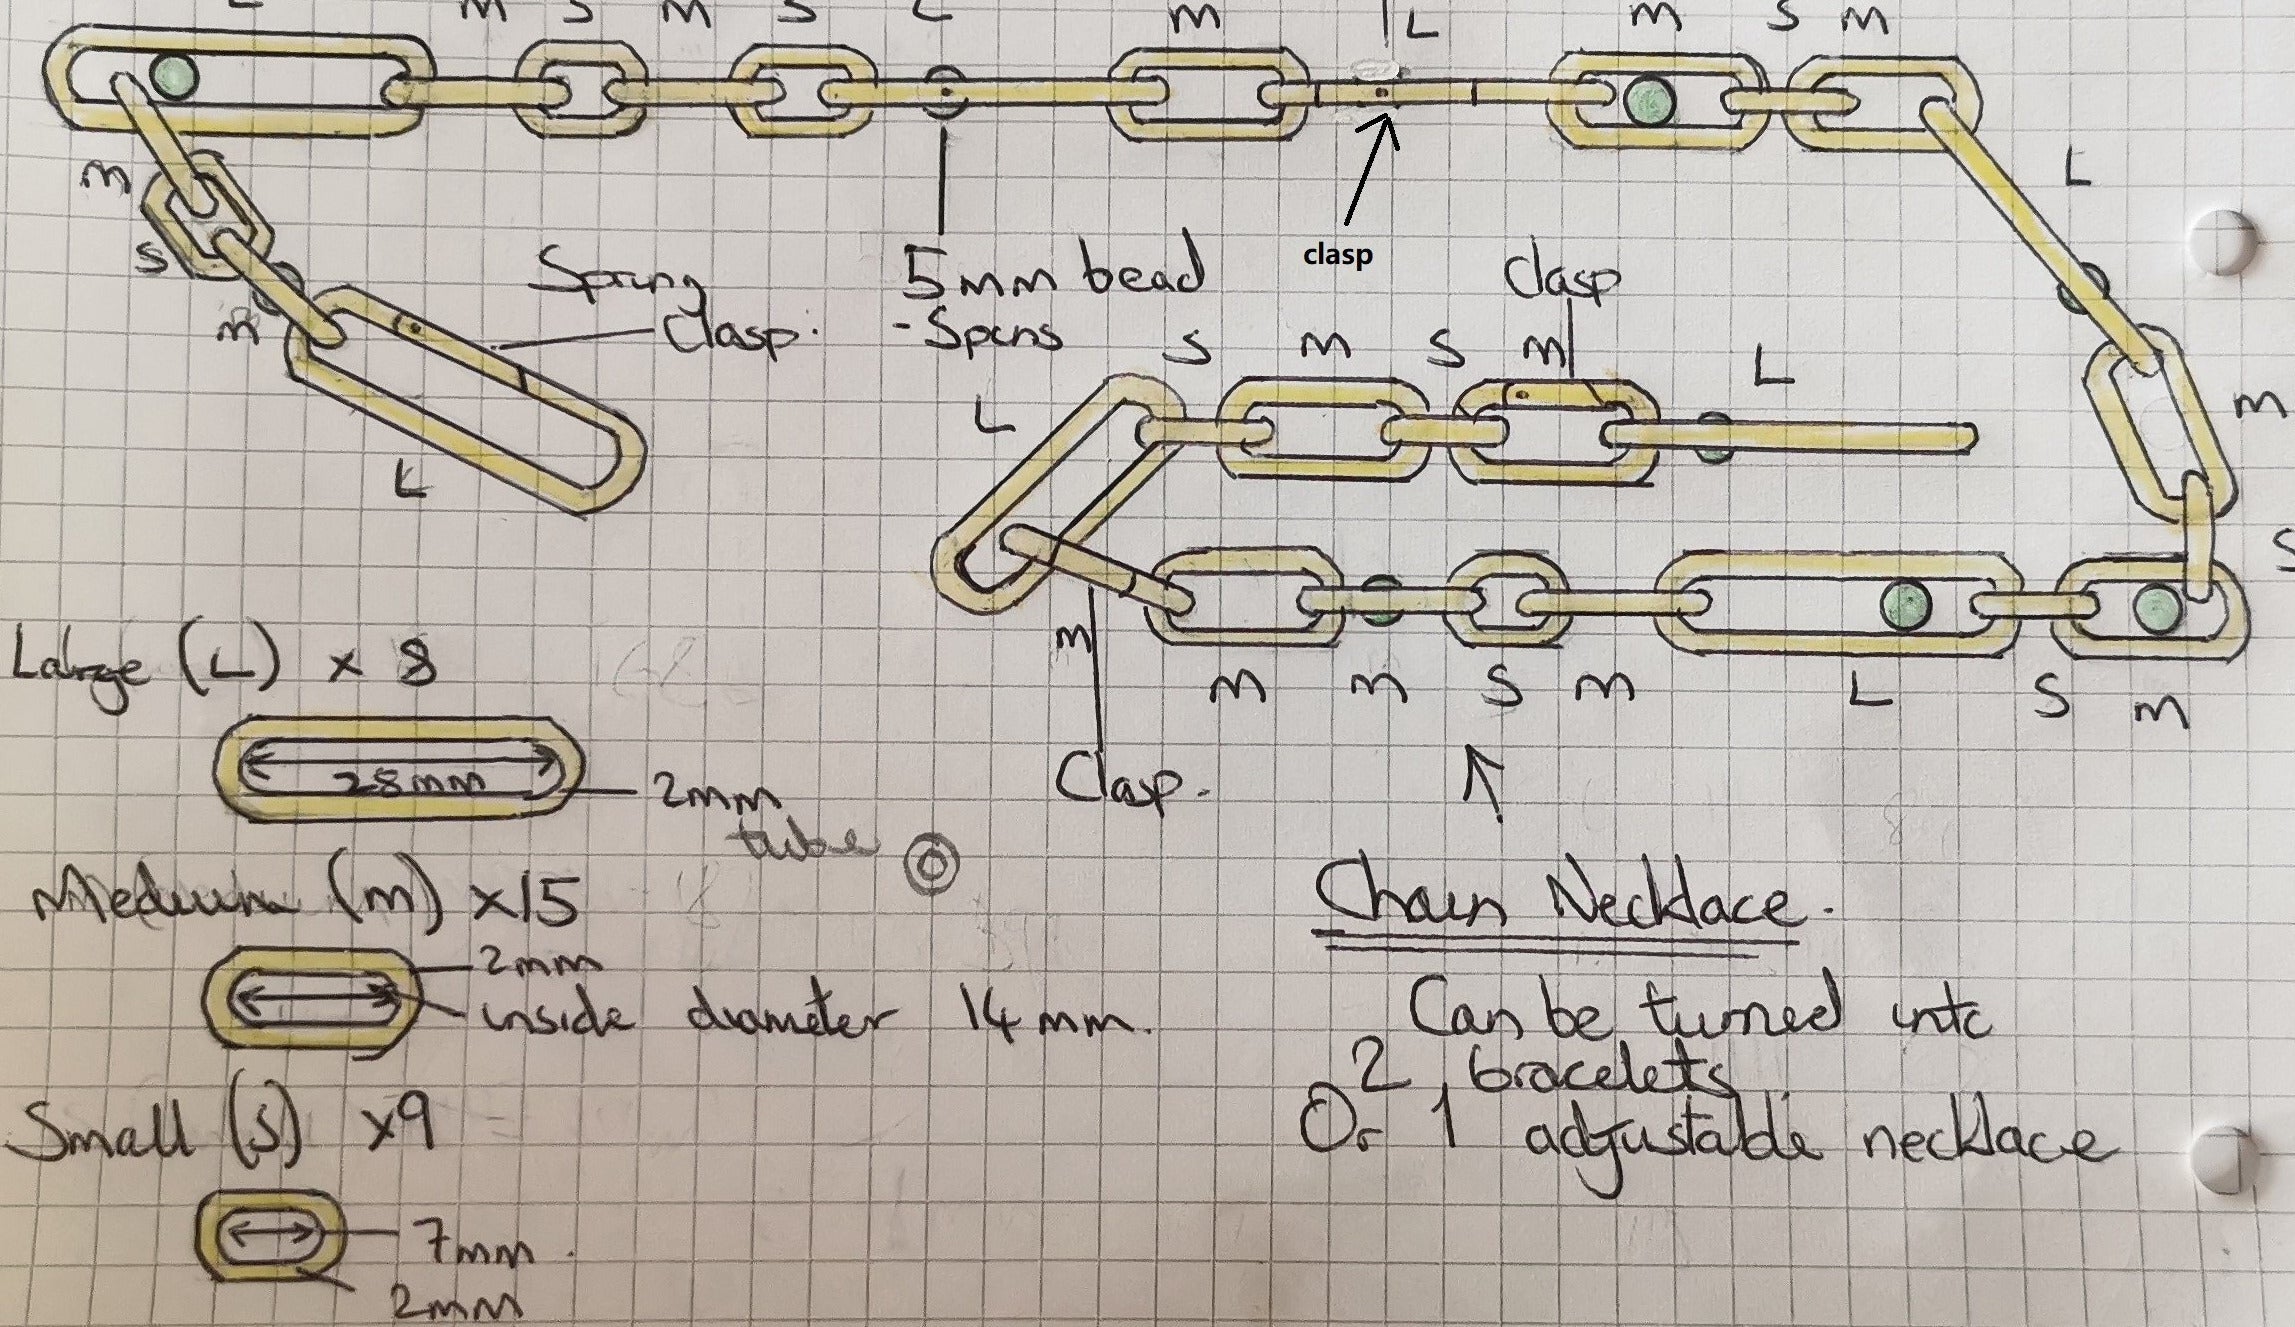 L m S m S L m L m S m
L
m
clasp
S
Spring
Clasp.
5mm bead
- Spins
Clasp
m
S m S m L
L
m
L
S
m
Large (L) x 8
m m S m L S m
28mm
2mm
tube
Clasp.
Medium (m) x15
Chain Necklace.
2mm
inside diameter 14mm.
Can be turned into
2 bracelets
Or 1 adjustable necklace
Small (S) x9
7mm.
2mm